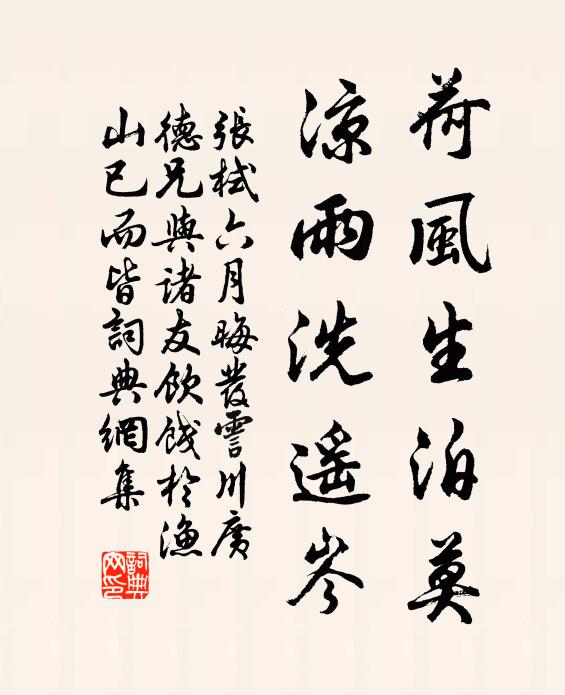 荷風生泊莫
涼雨洗遥岑
張栻六月晦發霅川廣
德兄與諸友飲餞於漁
山已而皆詞典網集
詞典
网印